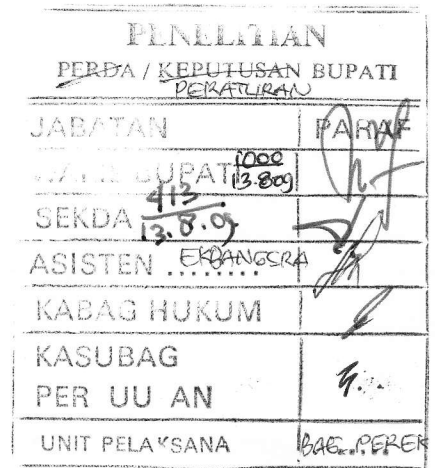 PENELITIAN
PERDA / KEPUTUSAN BUPATI
PERATURAN
JABATAN PARAF
BUPATI 1000 13.809
SEKDA 413 13.8.09
ASISTEN EKBANGSRA
KABAG HUKUM
KASUBAG
PER UU AN
UNIT PELAKSANA BAG. PEREK